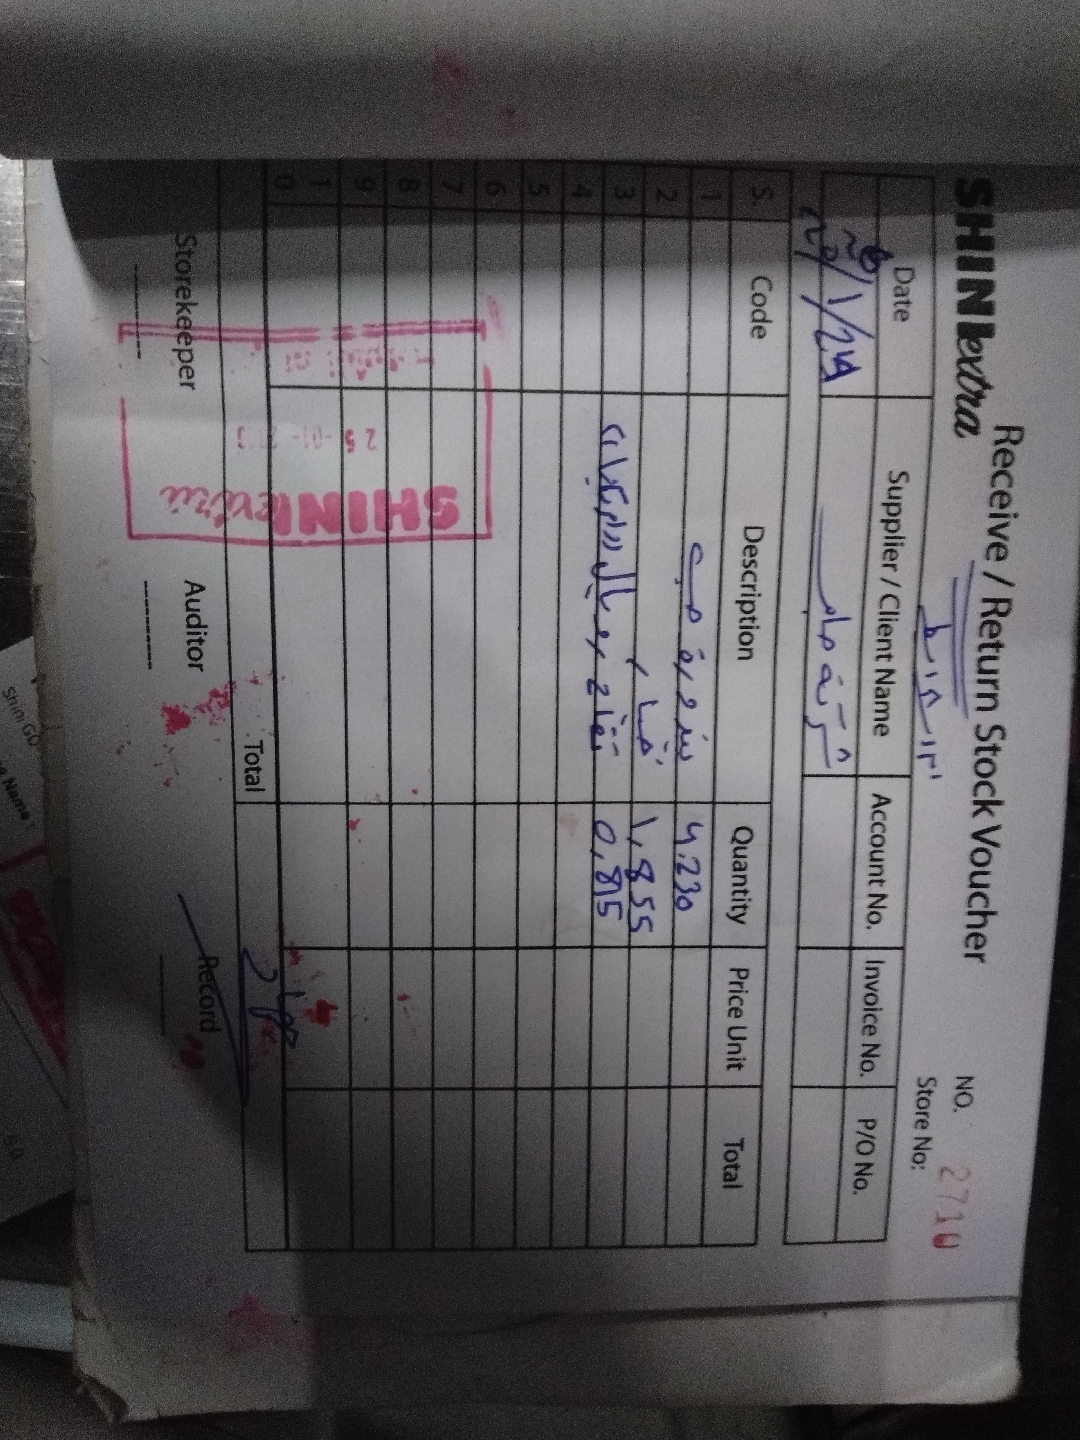 SHINIextra
Receive / Return Stock Voucher
NO. 2710
Store No:
Date Supplier / Client Name Account No. Invoice No. P/O No.
/1/24 شركة
S. Code Description Quantity Price Unit Total
1 بندورة حب 4.230
2 خيار 1,855
3 تفاح 0,815
4
5
6
7
8
9
1
0
Total
SHINIextra
25-01-
Storekeeper Auditor Record